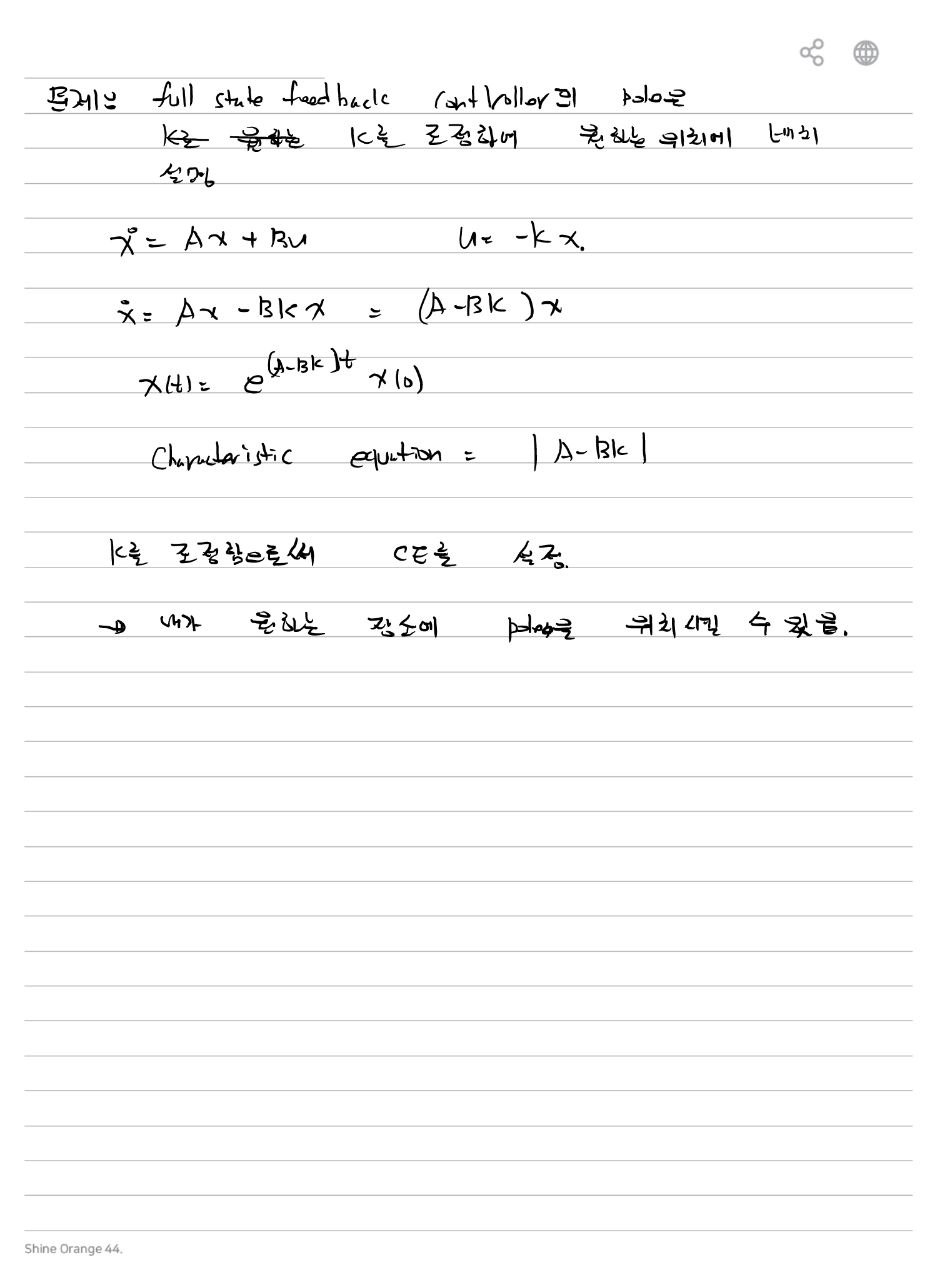 문제는 full state feedback controller의 pole을
K를 원하는 K를 조정하여 원하는 위치에 배치
설정
ẋ = Ax + Bu u = -Kx.
ẋ = Ax - BKx = (A-BK)x
x(t) = e^{(A-BK)t} x(0)
Characteristic equation = |A-BK|
K를 조정함으로써 CE를 설정.
→ 내가 원하는 장소에 pole을 위치시킬 수 있음.
Shine Orange 44.